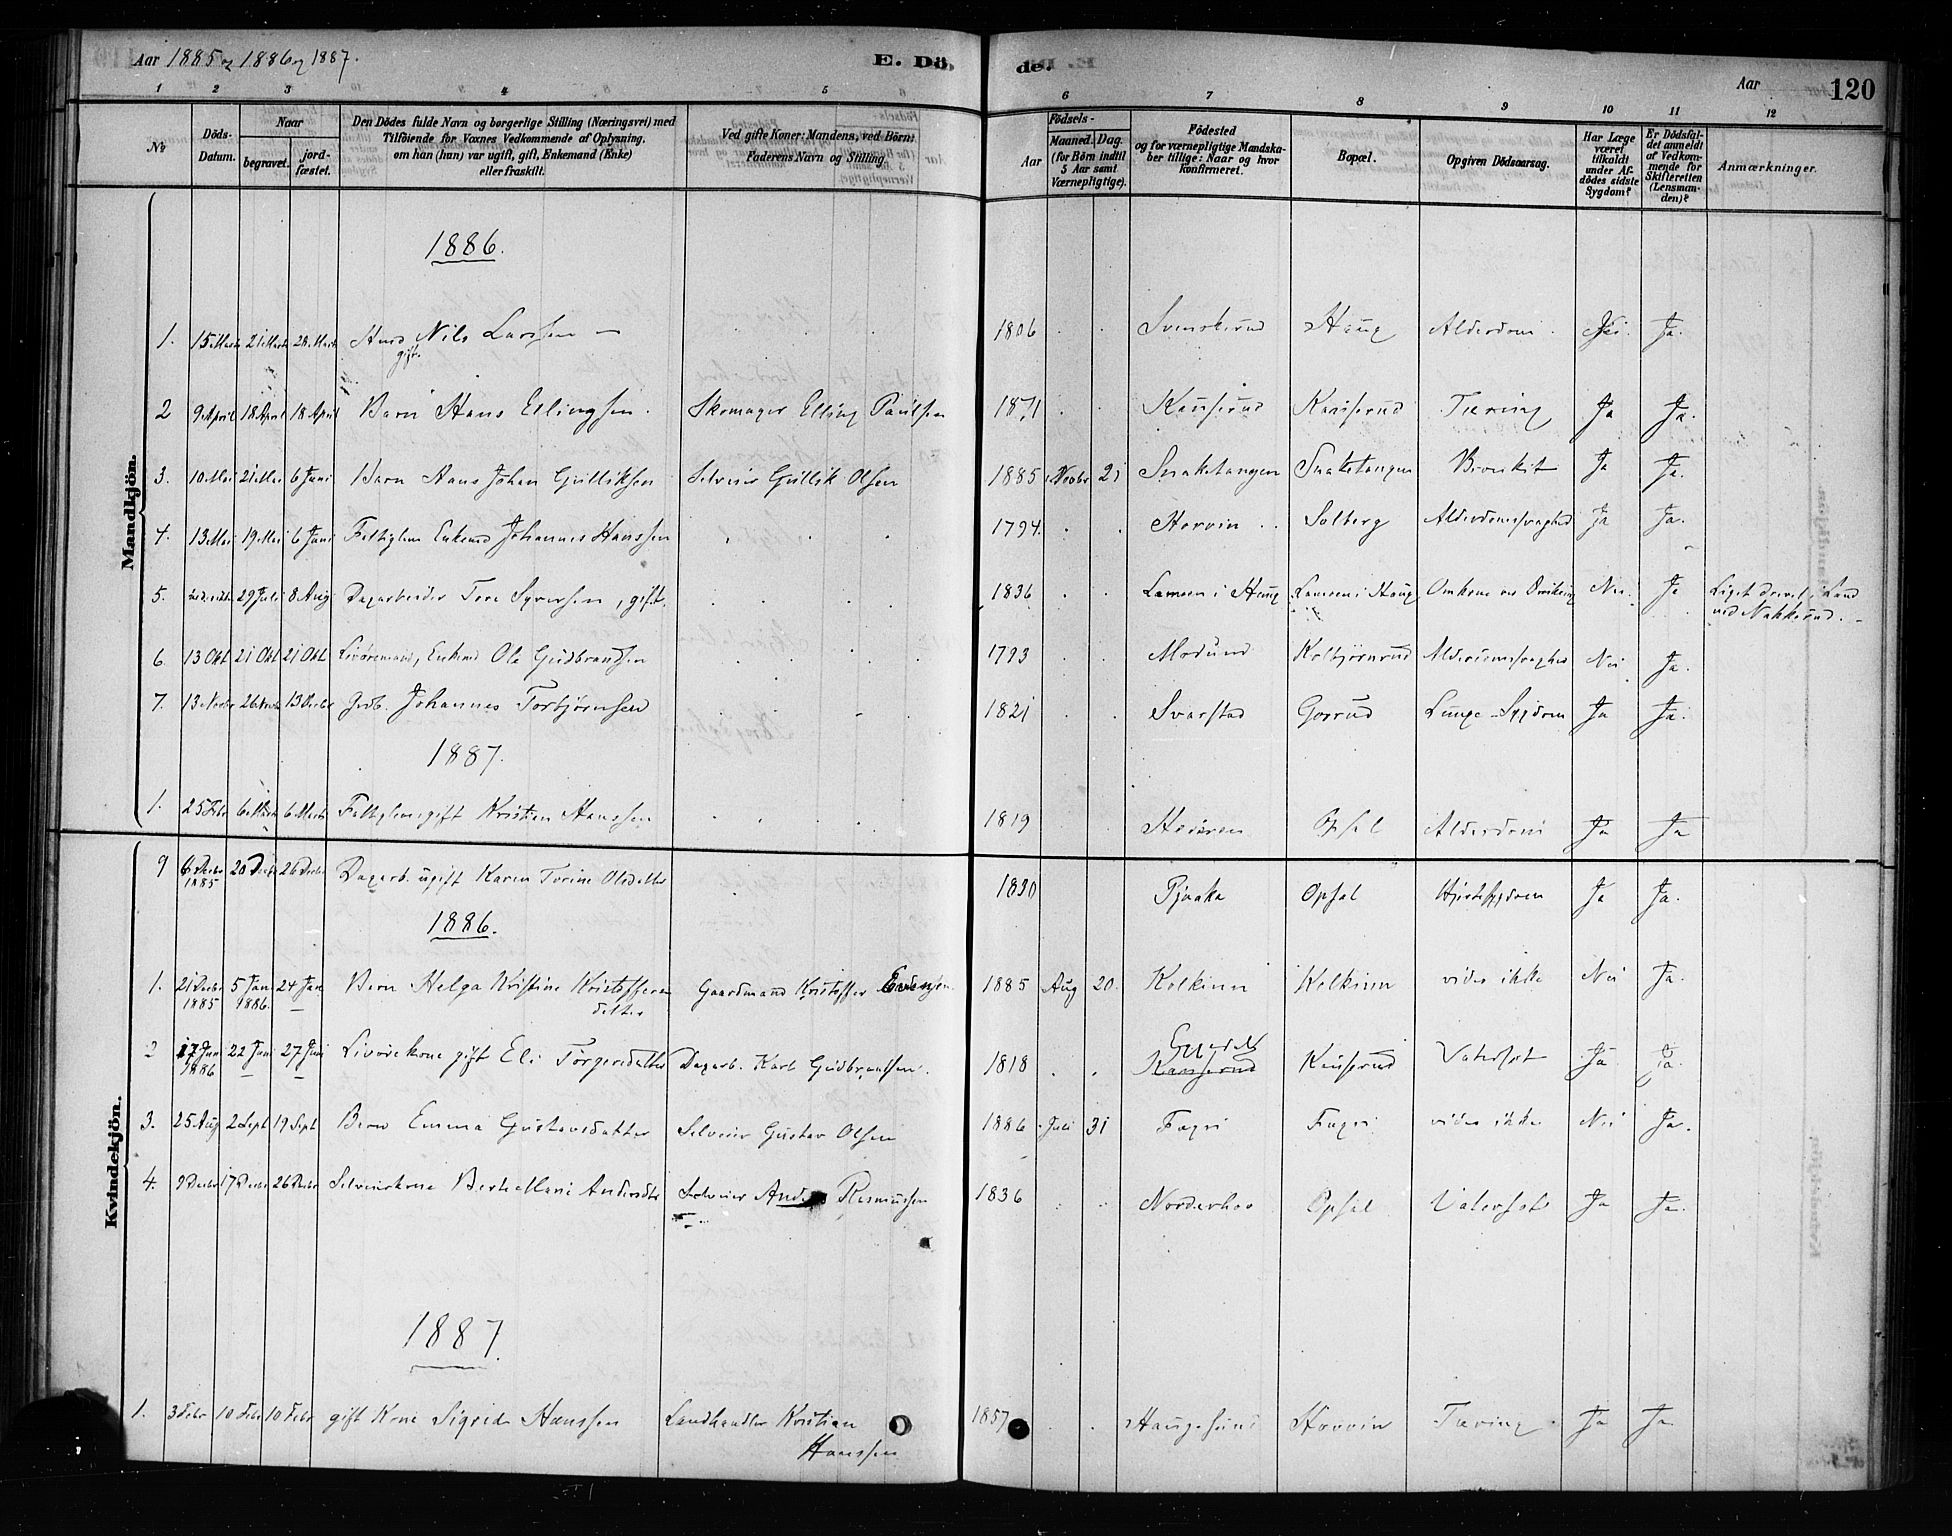 Aar 1885 og 1886 og 1887.
E. Dö- de.
Aar 120
1 2 3 4 5 6 7 8 9 10 11 12
№ Döds-Datum. Naar begravet. jord-fæstet. Den Dödes fulde Navn og borgerlige Stilling (Næringsvei) med Tilföiende for Voxnes Vedkommende af Oplysning, om han (hun) var ugift, gift, Enkemand (Enke) eller fraskilt. Ved gifte Koner: Mandens, ved Börn: Faderens Navn og Stilling. Födsels- Aar Maaned. Dag. (for Börn indtil 5 Aar samt Værnepligtige). Födested og for værnepligtige Mandskaber tillige: Naar og hvor konfirmeret. Bopæl. Opgiven Dödsaarsag. Har Læge været tilkaldt under Afdödes sidste Sygdom? Er Dödsfaldet anmeldt af Vedkommende for Skifteretten (Lensmanden)? Anmærkninger.
Mandkjön.
1886.
1. 15 Marts 21 Marts 28 Marts Nils Larssen gift. 1806 Svenskerud Haug Alderdom. Nei Ja.
2 9 April 18 April 18 April Barn Hans Ellingsen. Skomager Elling Paulsen 1871 Kauserud Kauserud Tæring Ja Ja.
3. 10 Mai 21 Mai 6 Juni Barn Hans Johan Gulliksen Selveier Gullik Olsen 1885 Novbr 21 Snaketangen Snaketangen Bronkit Ja Ja.
4. 13 Mai 19 Mai 6 Juni Enkemd Johannes Hanssen 1794. Horvin Solberg Alderdomssvaghed Ja Ja.
5. 29 Juli 8 Aug Dagarbeider Tore Syversen, gift. 1836 Lamoen i Haug Lamoen i Haug Omkom ved Nei. Ja Liget drevet i Land ved Nakkerud.
6. 13 Okt 21 Okt 21 Okt Enkemd Ole Gudbrandsen 1793 Modum Kolbjörnrud Alderdomssvaghed Nei Ja.
7. 13 Novbr 26 Novbr 13 Decbr Grdb. Johannes Torbjörnsen 1821 Svarstad Gorrud Lunge-Sygdom Ja Ja.
1887.
1. 25 Febr 6 Marts 6 Marts gift Kristian Hanssen 1819 Opsal Alderdom Ja Ja
Kvindekjön.
9 6 Decbr 1885 20 Decbr 26 Decbr Dagarb. ugift Karen Torine Olsdatter 1830 Pjaaka Opsal Hjertesygdom Ja Ja.
1886.
1. 21 Decbr 1885 5 Jan 1886. 24 Jan Barn Helga Kristine Kristoffersdatter Gaardmand Kristoffer 1885 Aug 20. Kolkinn Kolkinn vides ikke Nei Ja.
2 17 Juni 1886 22 Juni 27 Juni gift Eli Torgersdatter Dagarb. Karl Gudbrandsen. 1818 Kauserud Kauserud Vatersot Ja Ja.
3. 25 Aug 2 Sept 19 Sept Barn Emma Gustavsdatter Selveier Gustav Olsen 1886 Juli 31 Fageri Fageri vides ikke Nei Ja.
4. 9 Decbr 17 Decbr 26 Decbr Selveierkone Berthe Marie Andersdtr Selveier Anders Rasmussen 1836 Norderhov Opsal Vatersot Ja Ja.
1887
1. 3 Febr 10 Febr 10 Febr gift Kone Sigrid Hanssen Landhandler Kristian Hanssen 1857 Haugesund Horvin Tæring Ja Ja.